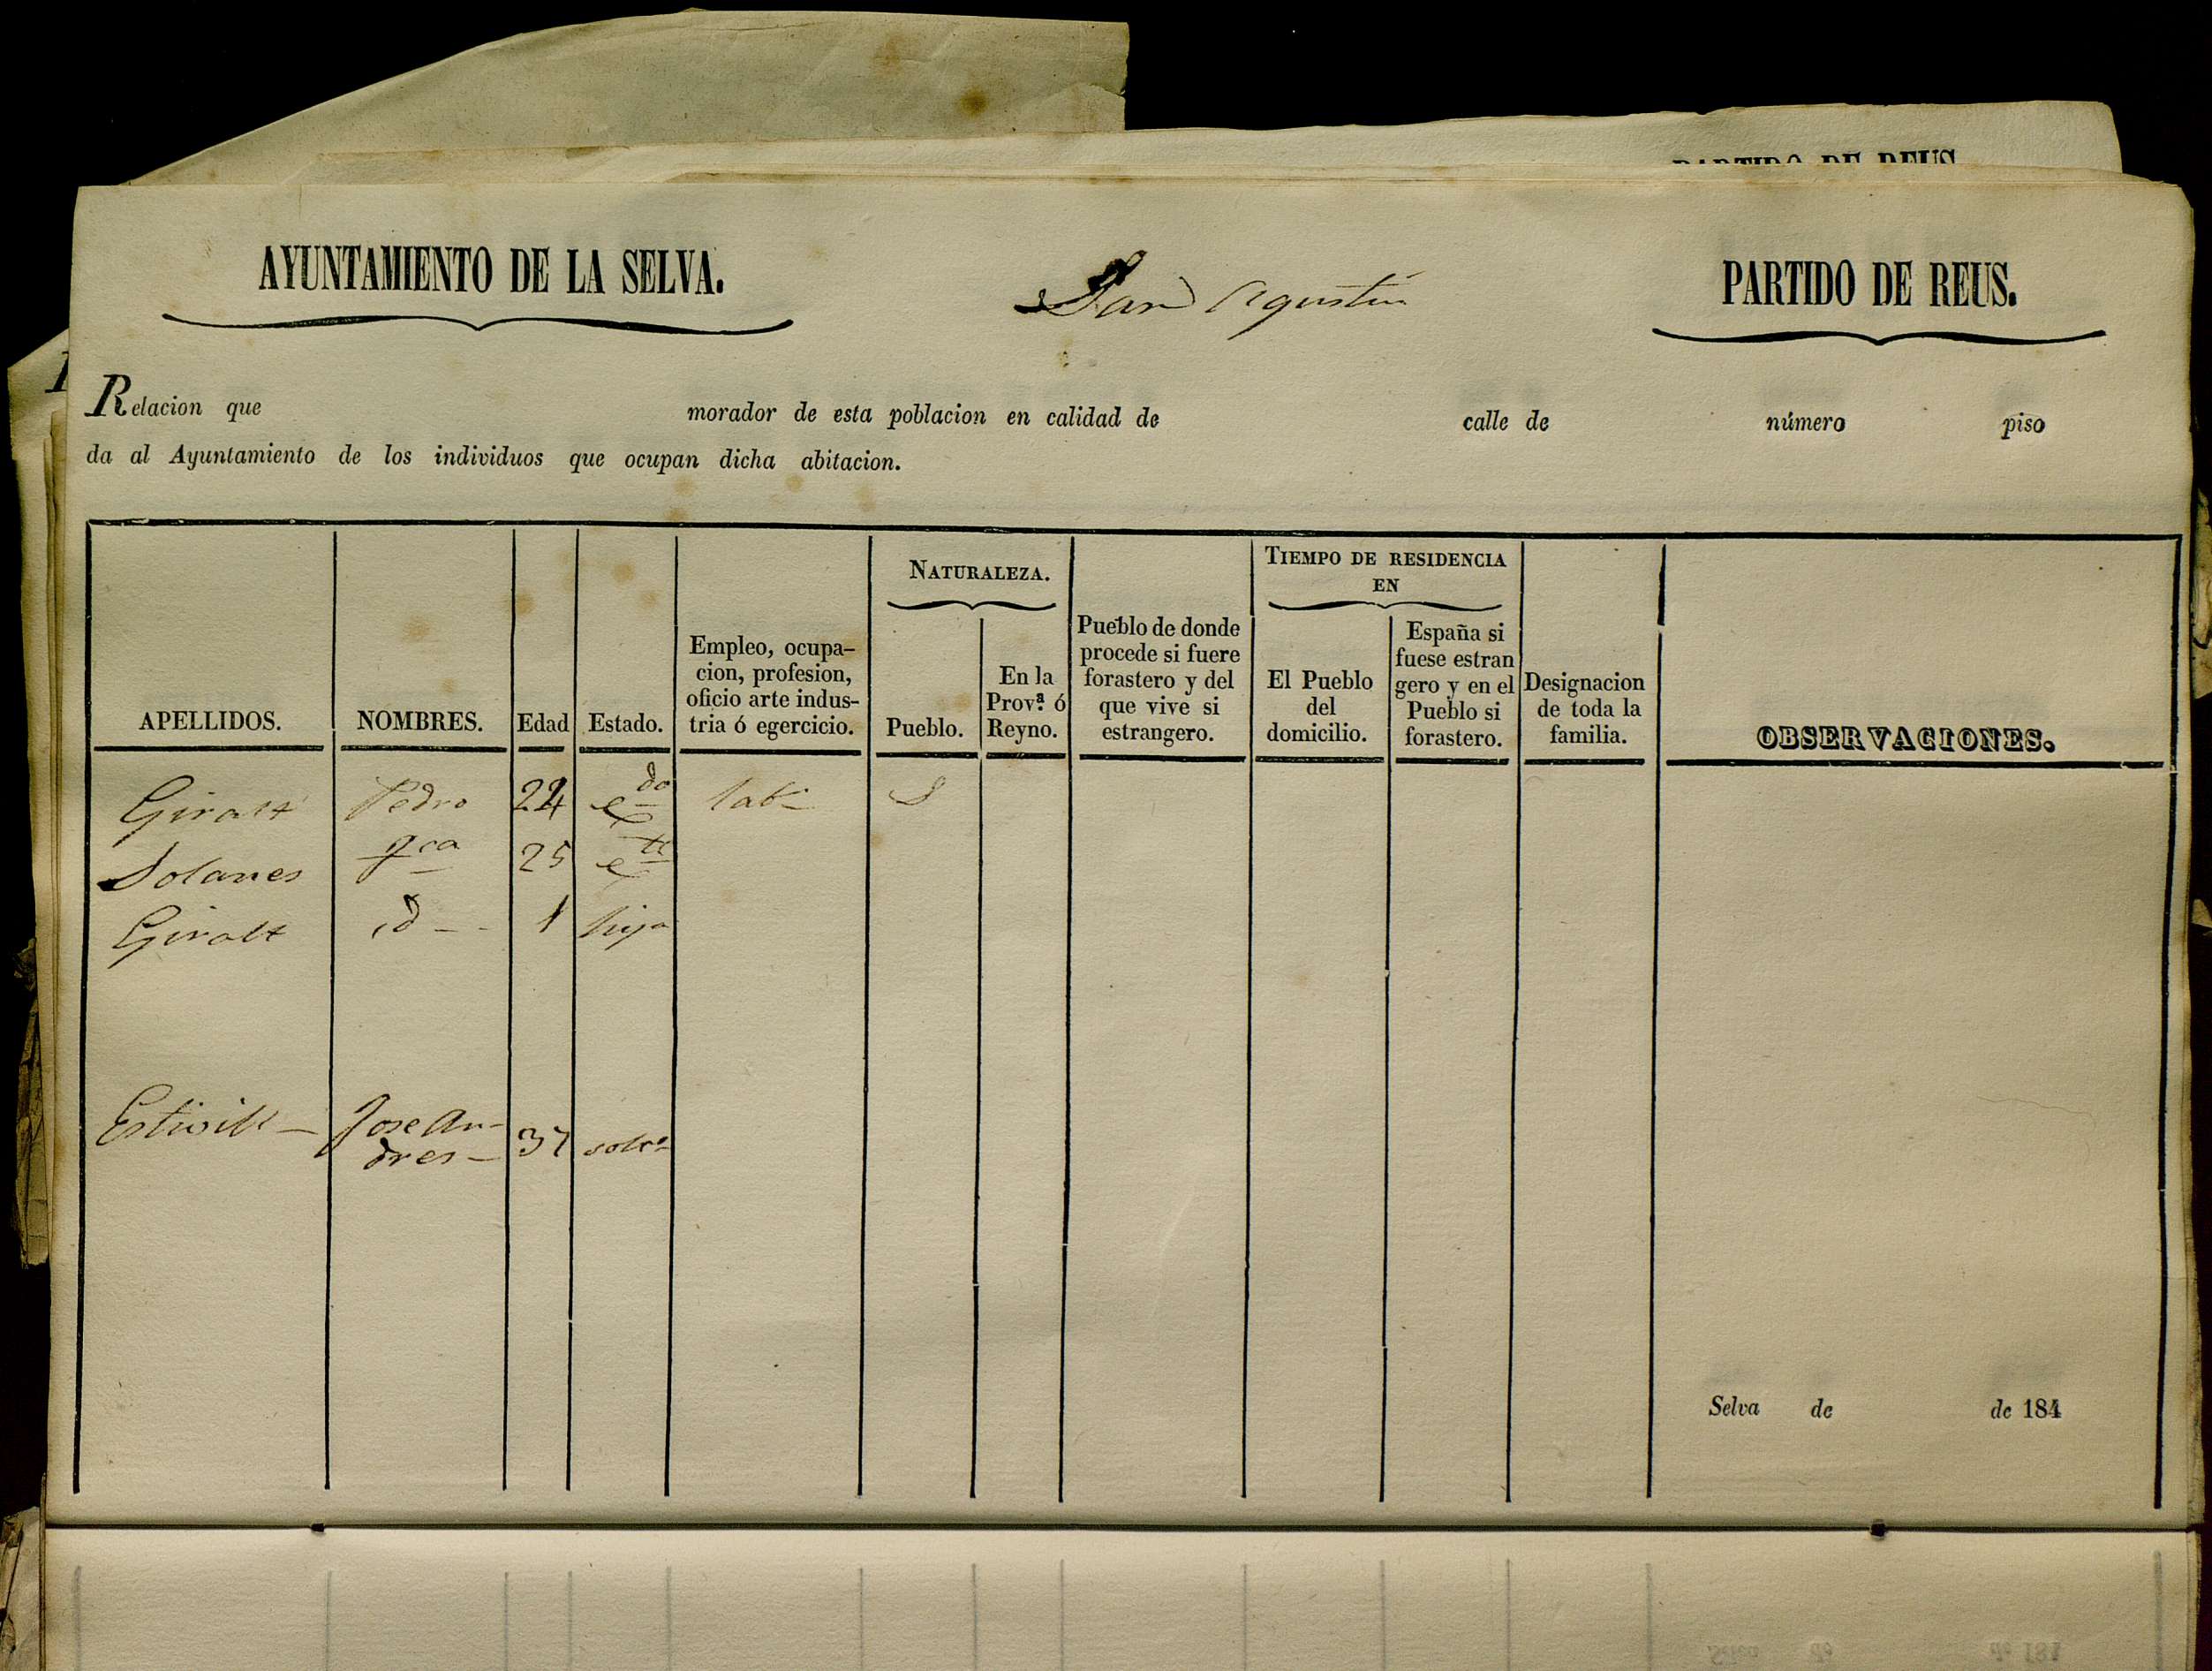 PARTIDO DE REUS
AYUNTAMIENTO DE LA SELVA.
San Agustin
PARTIDO DE REUS.
Relacion que morador de esta poblacion en calidad de calle de número piso
da al Ayuntamiento de los individuos que ocupan dicha abitacion.
APELLIDOS.
NOMBRES.
Edad
Estado.
Empleo, ocupa-
cion, profesion,
oficio arte indus-
tria ó egercicio.
NATURALEZA.
Pueblo.
En la
Prov.ª ó
Reyno.
Pueblo de donde
procede si fuere
forastero y del
que vive si
estrangero.
TIEMPO DE RESIDENCIA
EN
El Pueblo
del
domicilio.
España si
fuese estran
gero y en el
Pueblo si
forastero.
Designacion
de toda la
familia.
OBSERVACIONES.
Giralt Pedro 24 c.do lab.r S
Solanes fca 25 c
Giralt id 1 hija
Estivill Jose An-
dres 37 solt.o
Selva de de 184